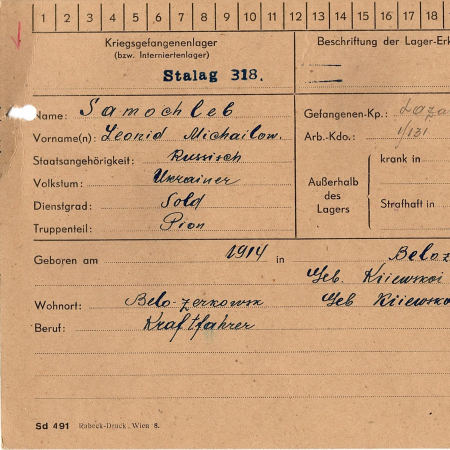 1 2 3 4 5 6 7 8 9 10 11 12 13 14 15 16 17 18
Kriegsgefangenenlager
(bzw. Interniertenlager)
Stalag 318.
Beschriftung der Lager-Erk
Name: Samochleb
Vorname(n): Leonid Michailow.
Staatsangehörigkeit: Russisch
Volkstum: Ukrainer
Dienstgrad: Sold
Truppenteil: Pion
Gefangenen-Kp.: Laza
Arb.-Kdo.: 1/131
Außerhalb des Lagers
krank in
Strafhaft in
Geboren am 1914 in Beloz
Geb. Kiiewskoi
Wohnort: Belo-zerkowsk Geb Kiiewsko
Beruf: Kraftfahrer
Sd 491 Robeck-Druck, Wien 8.